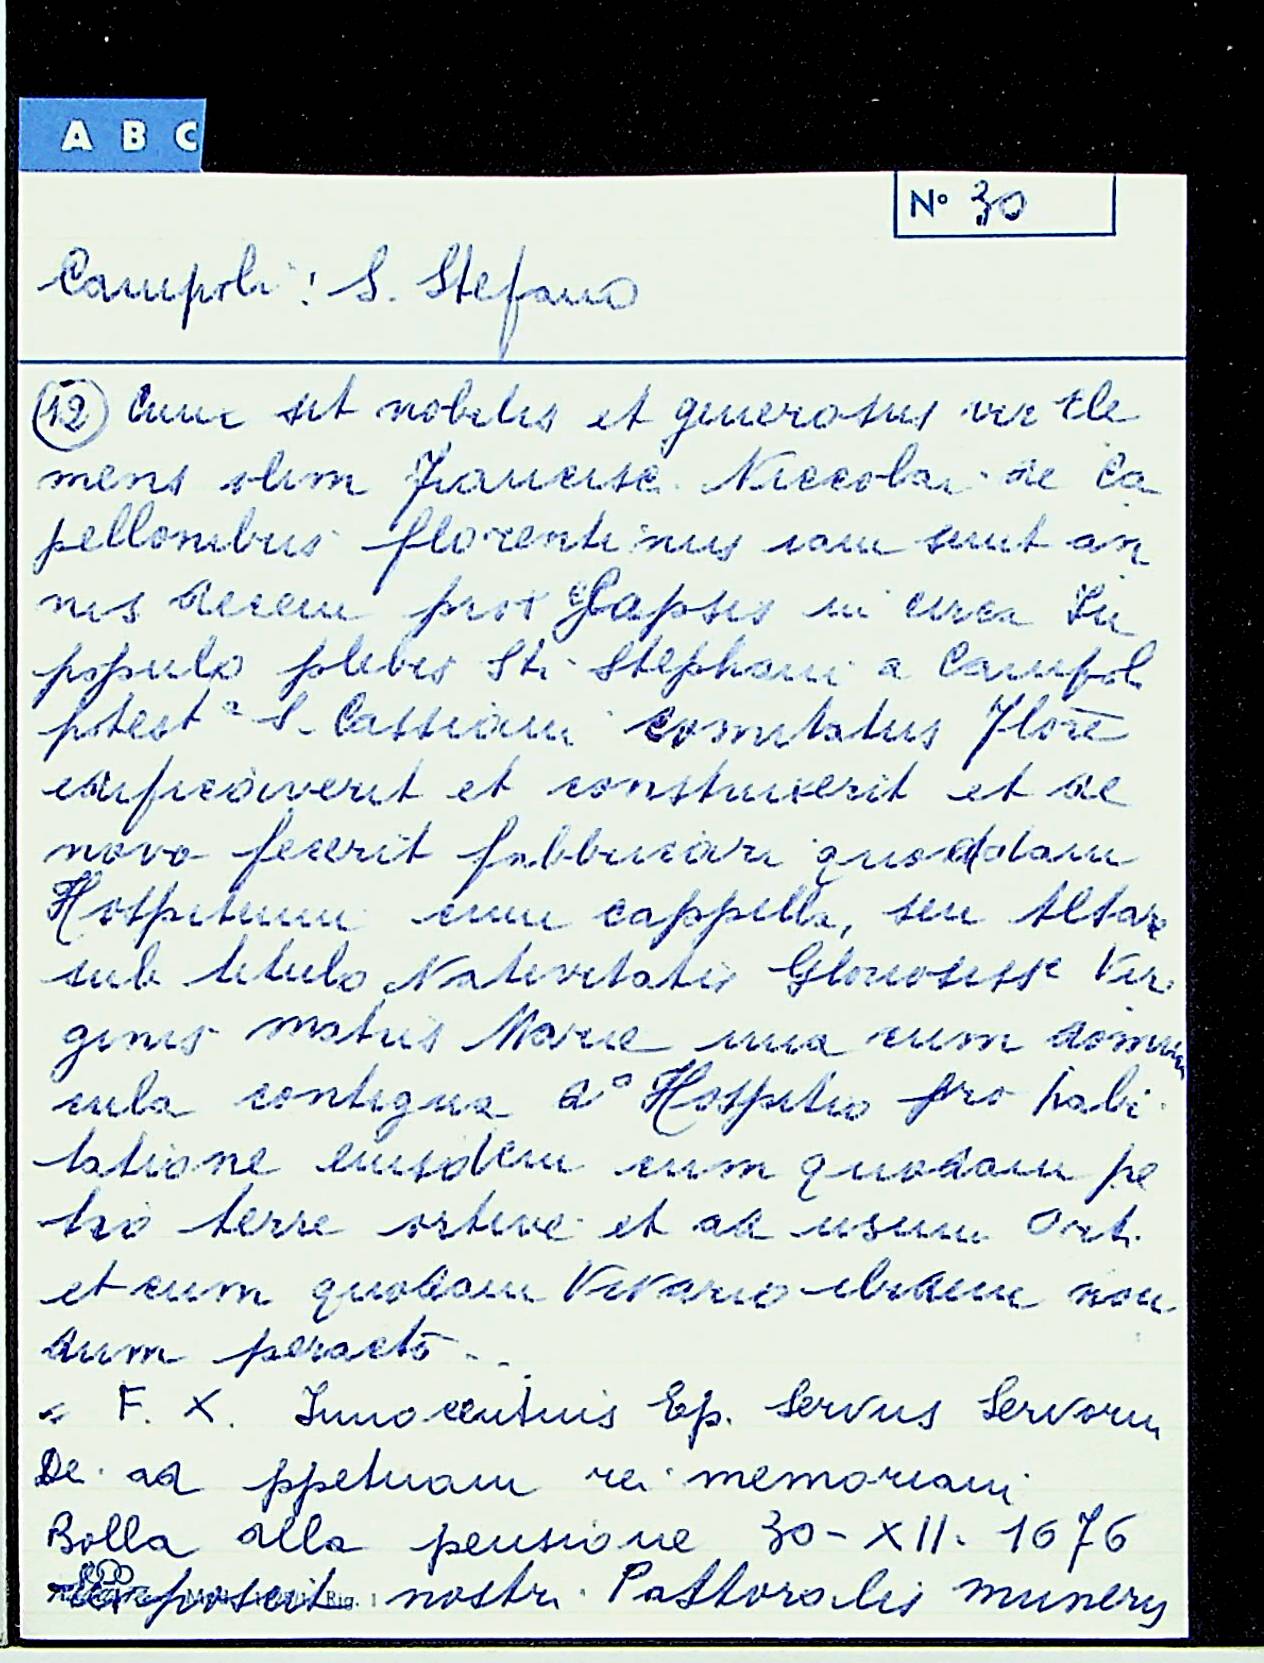 A B C
N° 30
Campoli: S. Stefano
(12) Cum sit nobilis et generosus vir Cle
mens olim Francisci Niccolai de Ca
pellonibus florentinus iam sunt an
nis decem prox elapsis in circa in
populo plebis Sti Stephani a Campoli
potest.a S. Cassiani comitatus Flore
edificaverit et construxerit et de
novo fecerit fabbricari quoddam
Hospitium cum cappella, seu Altare
sub titulo Nativitatis Glorosisse Vir
ginis matris Marie una cum domun
cula contigua do Hospitio pro habi
tatione eiusdem cum quodam pe
tio terre ortive et ad usum Orti
et cum quodam Vivario ibidem non
dum peracto..
" F. X. Innocentius Ep. Servus Servorum
Dei ad ppetuam rei memoriam
Bolla alla pensione 30-XII. 1676
exposcit nostri Pastoralis muneris